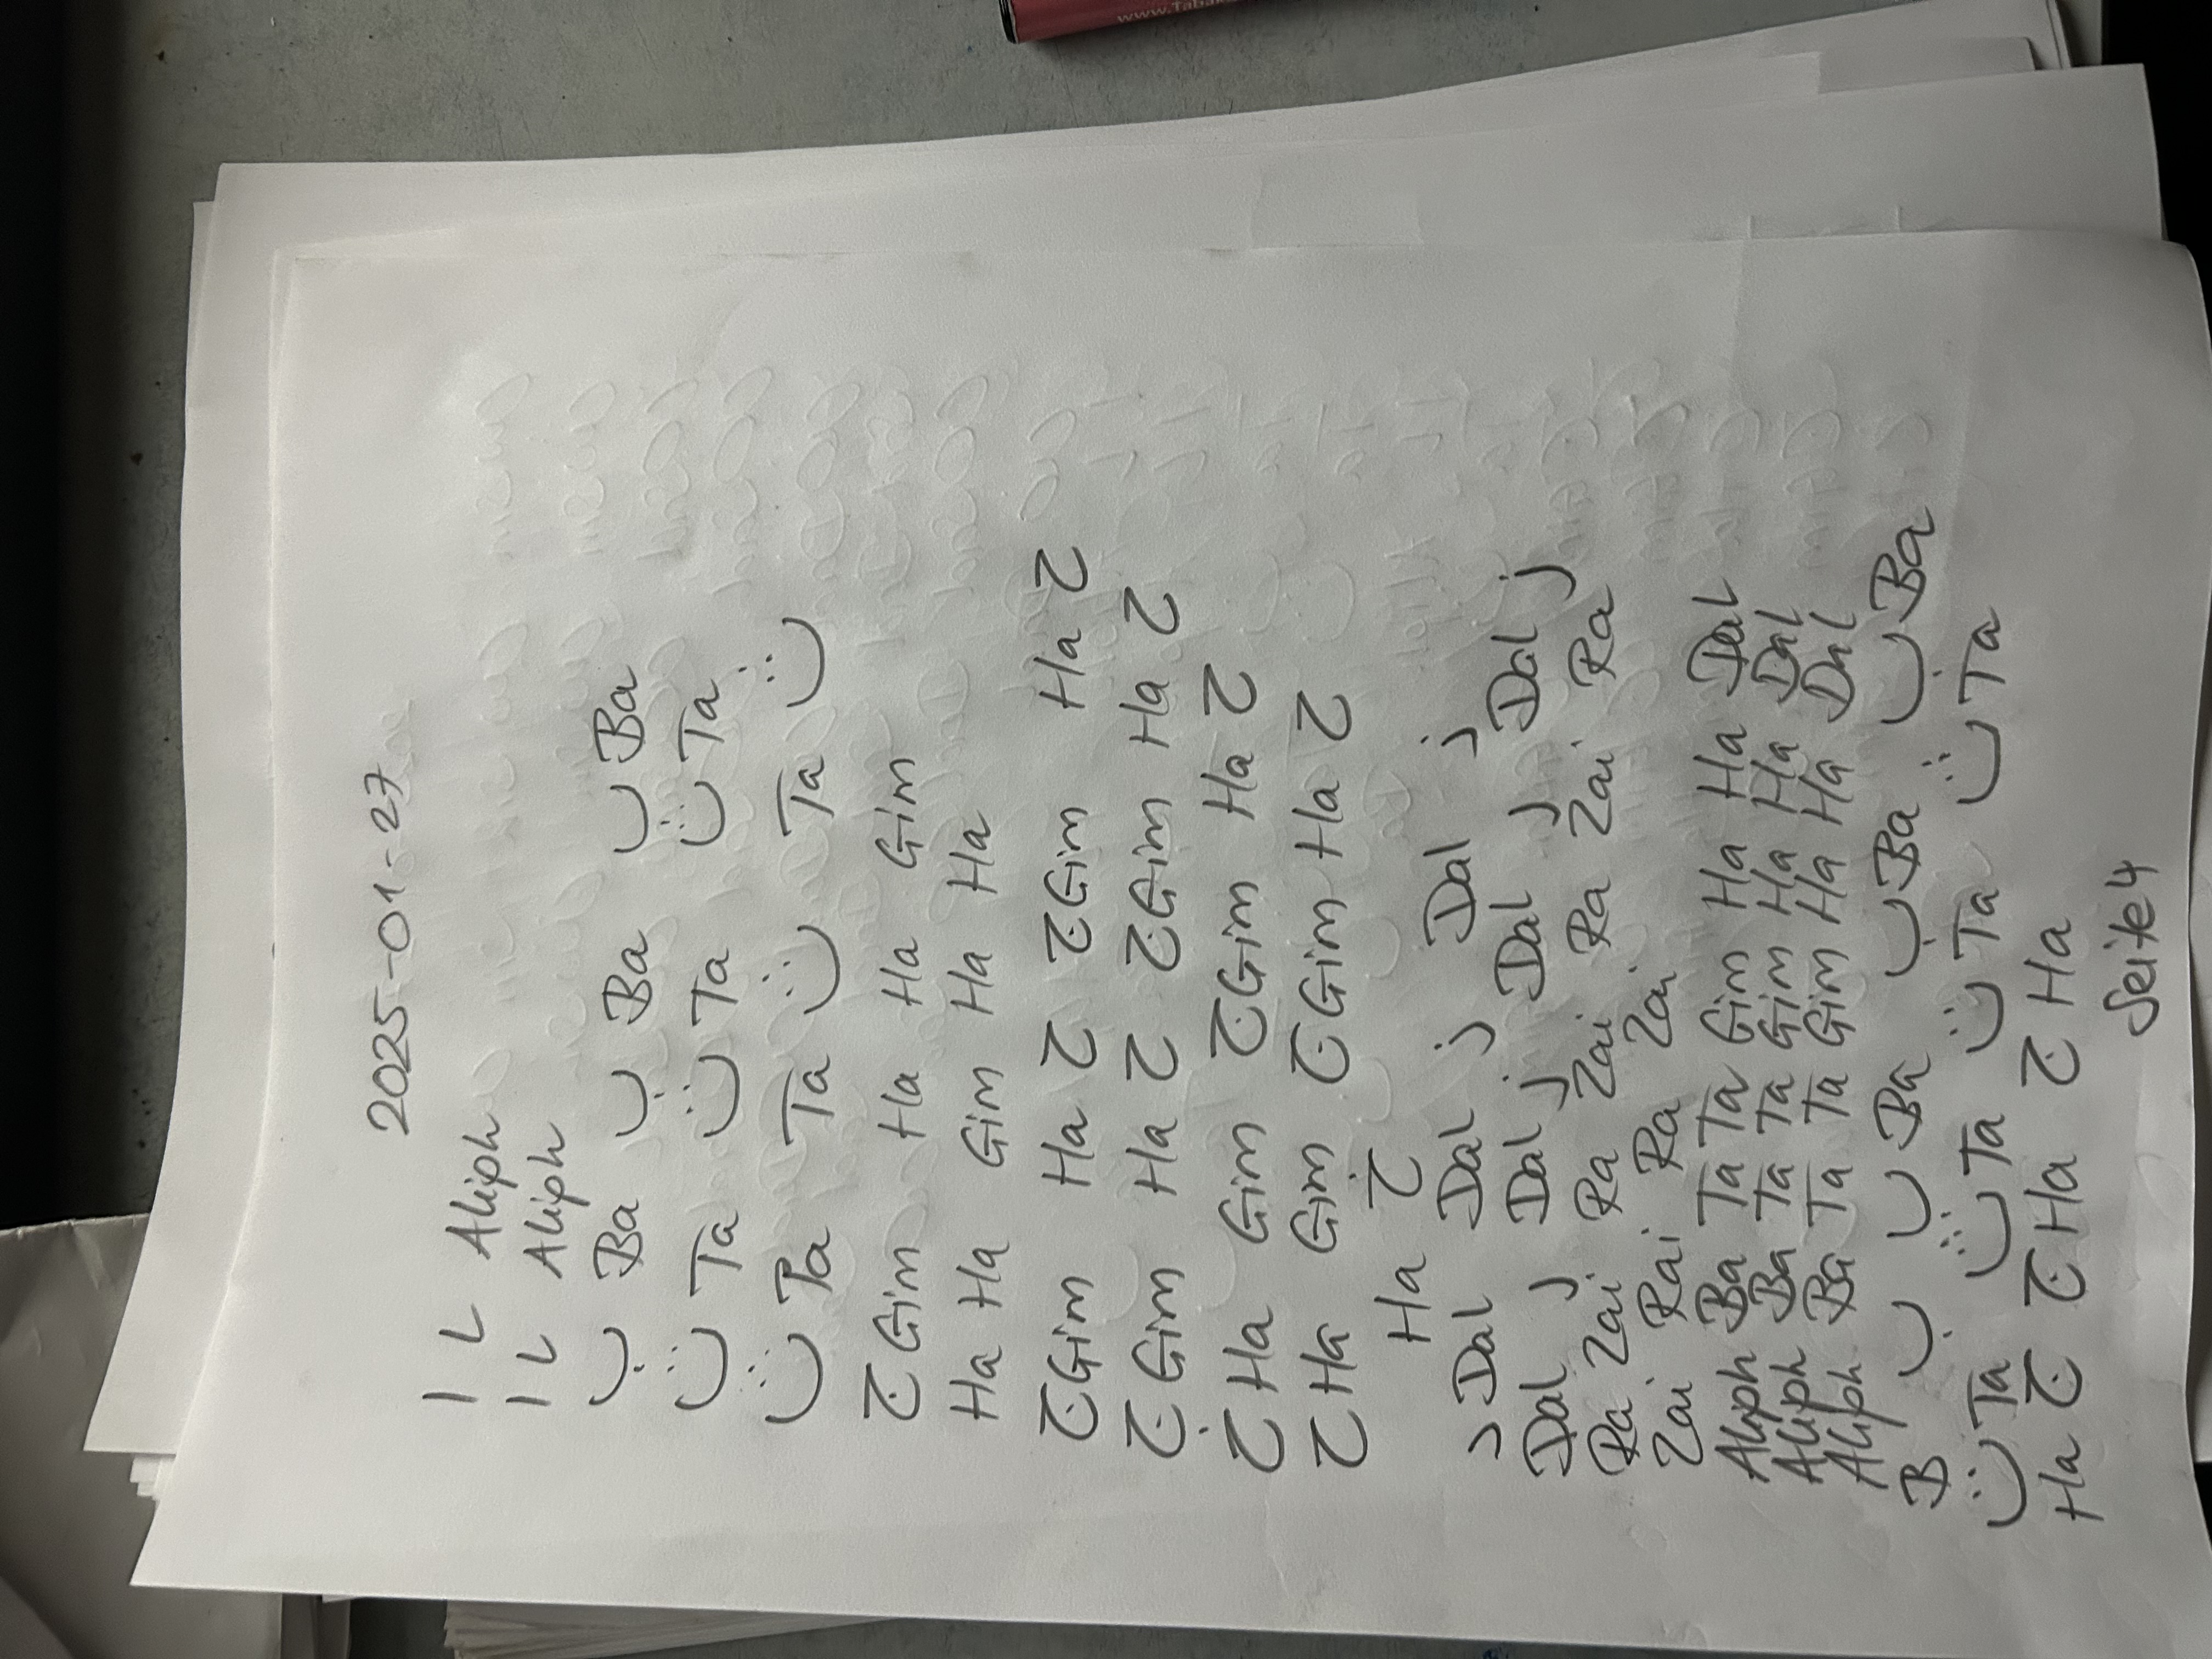 2025-01-27
ا ـا Aliph
ا ـا Aliph
ب Ba ب Ba ٮ Ba
ث Ta ت Ta ث Ta
ث Ta Ta ث Ta ث
ج Gim Ha Ha Gim
Ha Ha Gim Ha Ha
ج Gim Ha ح ج Gim Ha ح
ج Gim Ha ح ج Gim Ha ح
خ Ha Gim ج Gim Ha ح
ح Ha Gim ج Gim Ha ح
Ha خ
د Dal Dal ذ Dal ذ
Dal د Dal د Dal د Dal ذ
Ra Zai Ra Zai Ra Zai Ra
Zai Rai Ra Zai
Aliph Ba Ta Ta Gim Ha Ha Dal
Aliph Ba Ta Ta Gim Ha Ha Dal
Aliph Ba Ta Ta Gim Ha Ha Dal
B ب ٮ Ba ب Ba ب Ba
ت Ta ث Ta ت Ta ث Ta
Ha ج ج Ha ح Ha
Seite 4